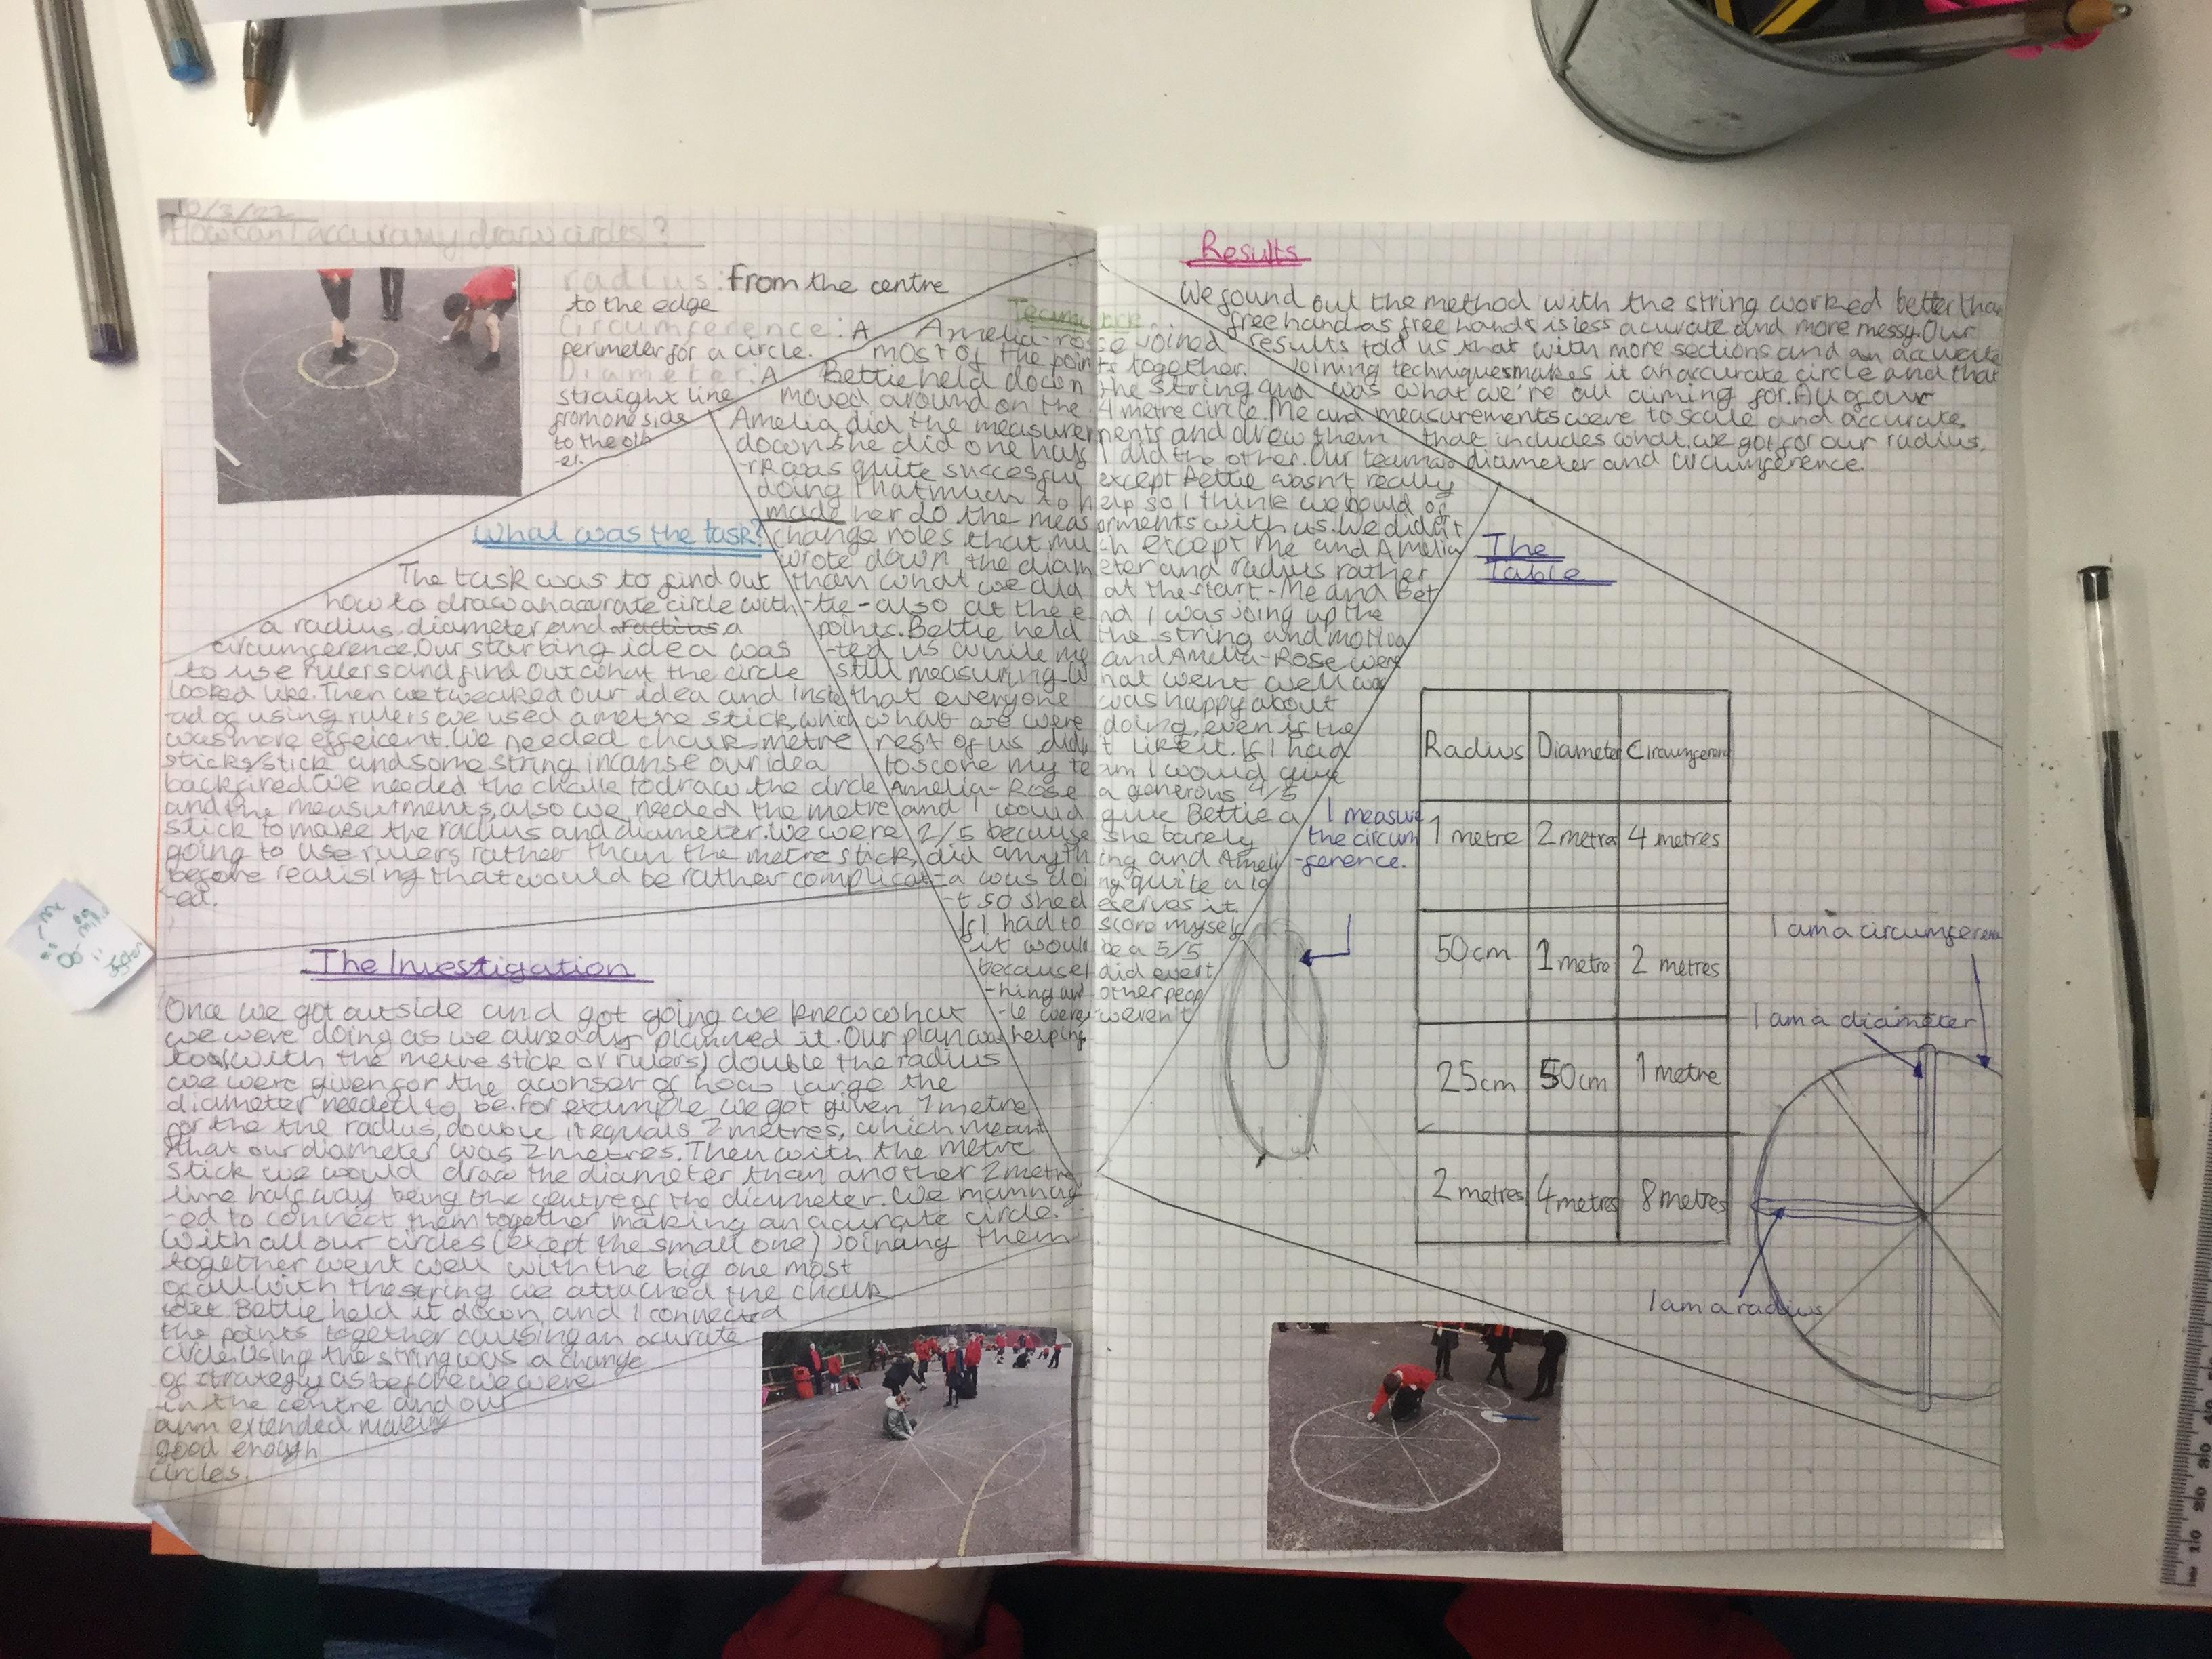 10/3/22
How can I accurately draw circles?
radius: From the centre
to the edge
Circumference: A
perimeter for a circle.
Diameter: A
straight line
from one side
to the oth
-er.
What was the task?
The task was to find out
how to draw an acurate circle with
a radius, diameter, and radius a
circumference. Our starting idea was
to use rulers and find out what the circle
looked like. Then we tweaked our idea and inste
-ad of using rulers we used a metre stick, which
was more effeicent. We needed chalk, metre
sticks/stick and some string incase our idea
backfired. We needed the chalk to draw the circle
and the measurments, also we needed the metre
stick to make the radius and diameter. We were
going to use rulers rather than the metre stick,
before realising that would be rather complicat
-ed.
The Investigation
Once we got outside and got going we knew what
we were doing as we already planned it. Our plan was
to (with the metre stick or rulers) double the radius
we were given for the awnser of how large the
diameter needed to be. for example we got given 1 metre
for the the radius, double it equals 2 metres, which meant
that our diameter was 2 metres. Then with the metre
stick we would draw the diameter than another 2 metre
line half way being the centre of the diameter. We mannag
-ed to connect them together making an acurate circle.
With all our circles (except the small one) joinang them
together went well with the big one most
of all with the string we attached the chalk
Bettie held it down and I connected
the points together causing an acurate
circle. Using the string was a change
of strategy as before we were
in the centre and our
arm extended making
good enough
circles.
Teamwork
Amelia-rose joined
most of the points together.
Bettie held down the string and
moved around on the 4 metre circle. Me and
Amelia did the measurements and drew them
down she did one half I did the other. Our teamwo
-rk was quite successful except Bettie wasn't really
doing that much to help so I think we could of
made her do the measurments with us. We didn't
change roles that much except me and Amelia
wrote down the diameter and radius rather
than what we did at the start. - Me and Bet
-tie - also at the end I was joing up the
points. Bettie held the string and motiva
-ted us while me and Amelia-Rose were
still measuring. What went well was
that everyone was happy about
what we were doing, even if the
rest of us didn't like it. If I had
to score my team I would give
Amelia-Rose a generous 4/5
and I would give Bettie a
2/5 because she barely
did anything and Ameli
-a was doing quite a lo
-t so she deserves it.
If I had to score myself
it would be a 5/5
because I did everyt
-hing and other peop
-le were weren't
helping
Results
We found out the method with the string worked better than
free hand as free hands is less acurate and more messy. Our
results told us that with more sections and an accurate
Joining techniques makes it an accurate circle and that
was what we're all aiming for. All of our
measurements were to scale and accurate,
that includes what we got for our radius,
diameter and circumference.
The
Table
Radius Diameter Circumference
1 metre 2 metres 4 metres
50cm 1 metre 2 metres
25cm 50cm 1 metre
2 metres 4 metres 8 metres
I measure
the circum
-ference.
I am a circumference
I am a diameter
I am a radius